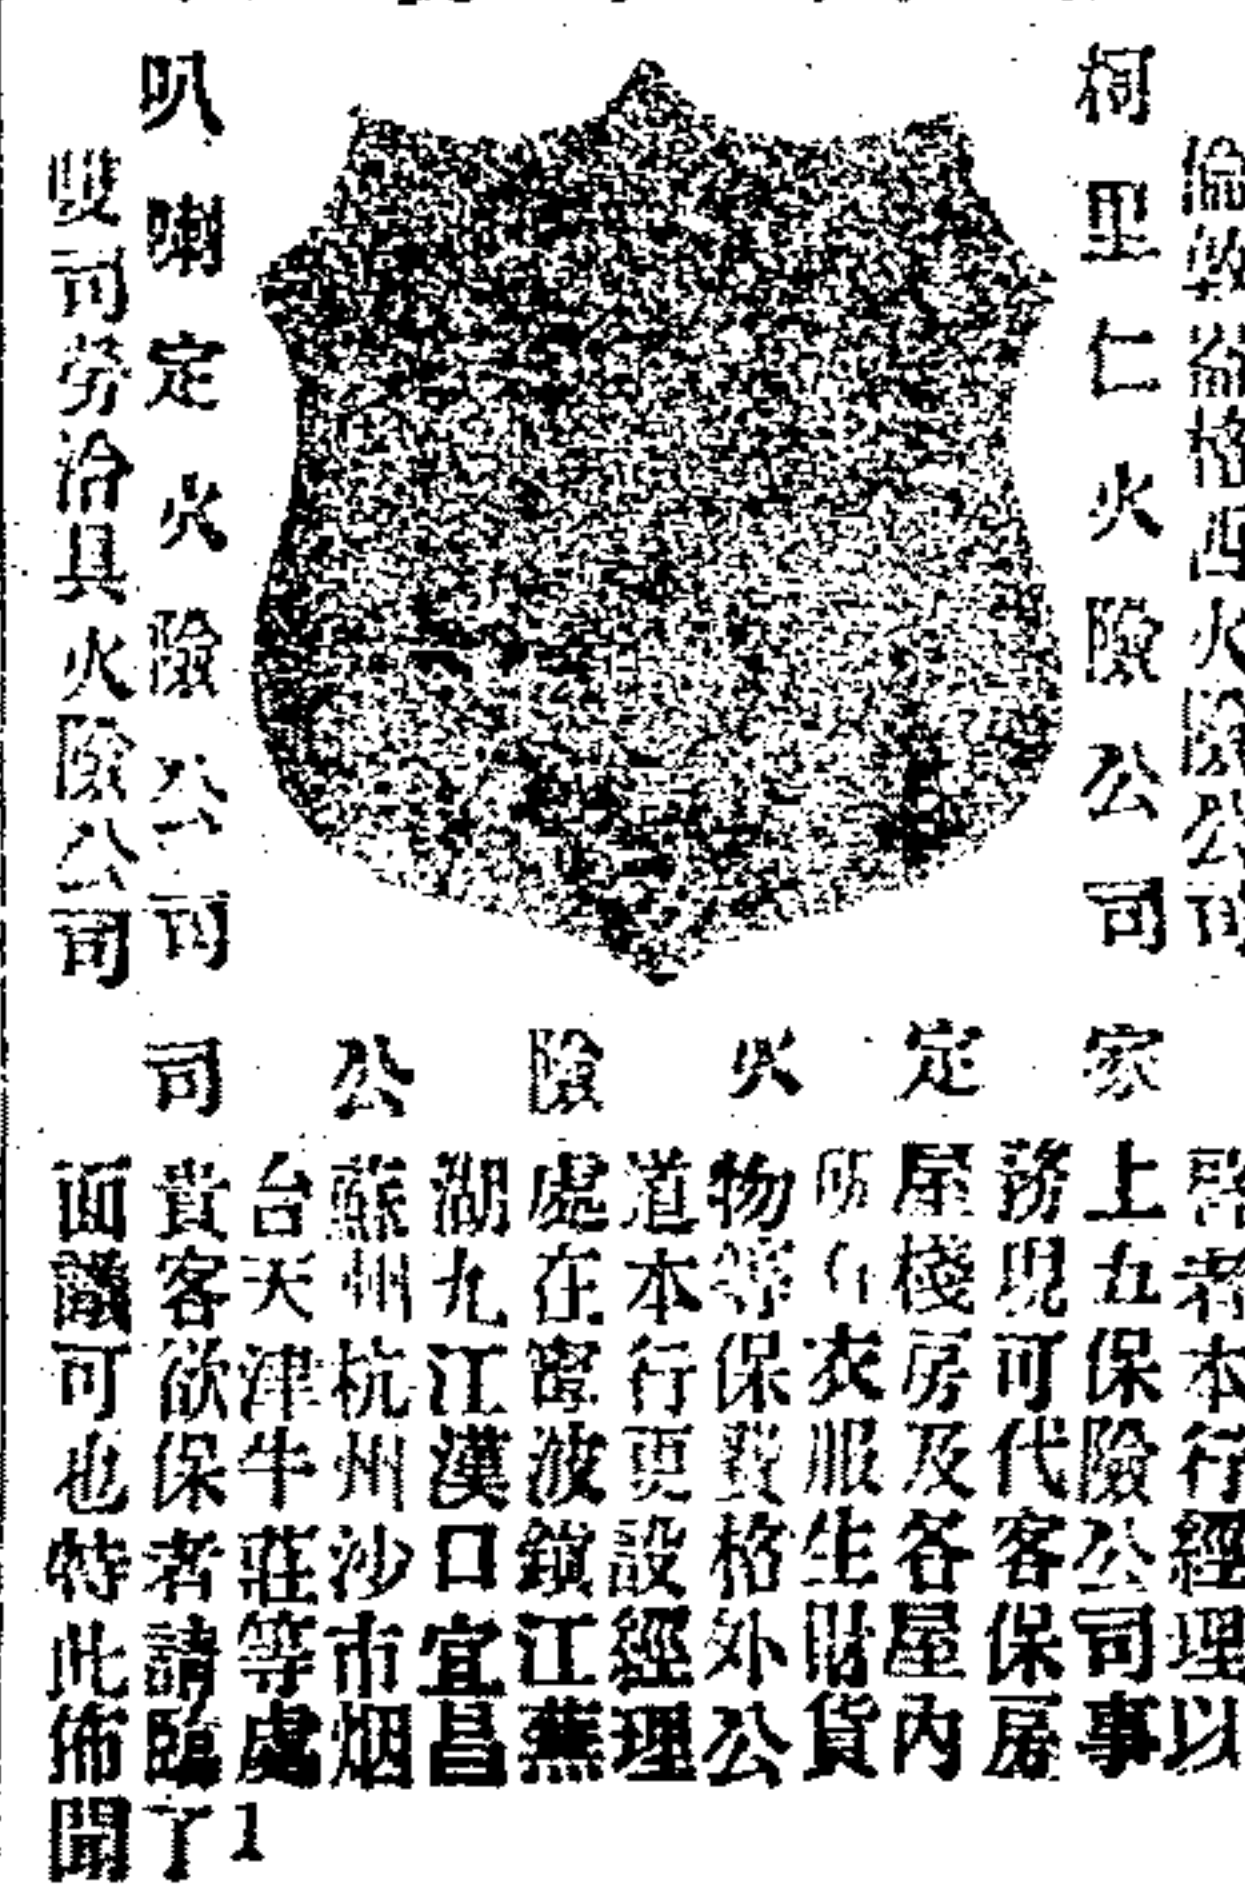 倫敦益格西火險公司
柯里仁火險公司
叭喇定火險公司
雙司勞洽具火險公司
家定火險公司
啓者本行經理以
上五保險公司事
務現可代客保房
屋棧房及各屋內
所有衣服生財貨
物等保費格外公
道本行更設經理
處在寧波鎮江蕪
湖九江漢口宜昌
蘇州杭州沙市烟
台天津牛莊等處
貴客欲保者請臨
面議可也特此佈聞